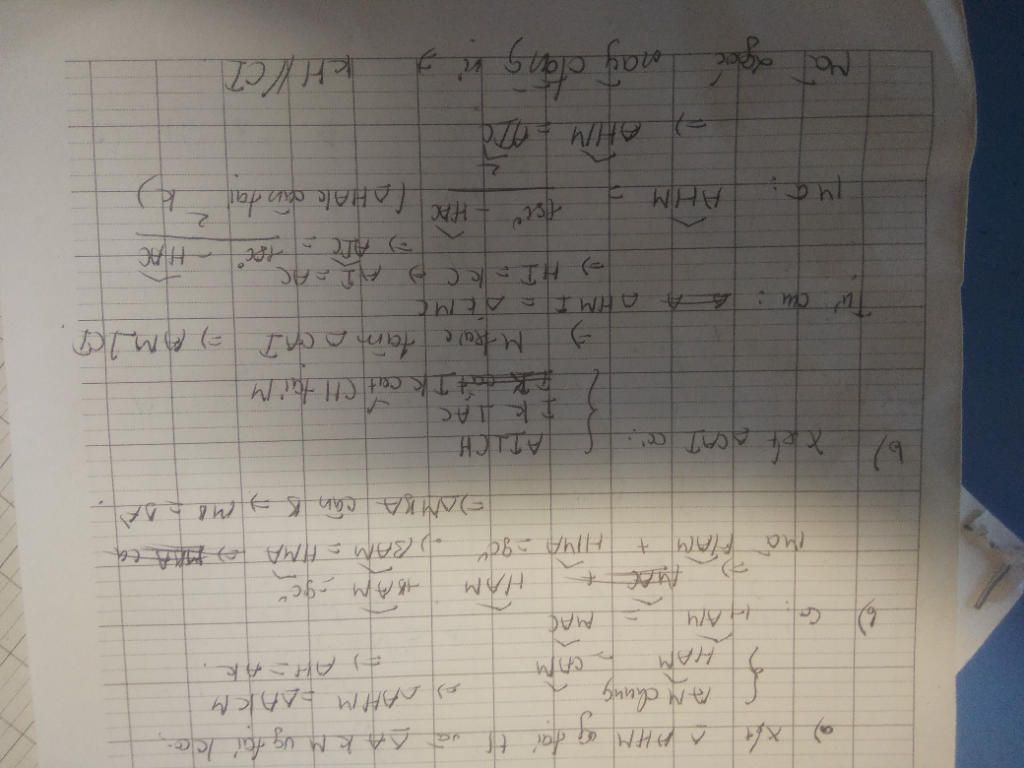 a) Xét △AHM vg tại H và △AKM vg tại K có:
AM chung
HAM = CAM
⇒ △AHM = △AKM
⇒ AH = AK.
b) Có: HAM = MAC
⇒ HAM + BAM = 90°
Mà HAM + HMA = 90° ⇒ BAM = HMA
⇒ △MBA cân B ⇒ MB = BA.
b) Xét △CAI có: AI⊥CH
IK⊥AC
IK cắt CH tại M
⇒ M trực tâm △CAI ⇒ AM⊥CI
△HMI = △KMC
⇒ HI = KC ⇒ AI = AC
⇒ AIC = 180° - HAC / 2
Mà: AHM = 180° - HAC / 2 (△HAK cân tại K)
⇒ AHM = AIC
Mà 2 góc này đồng vị ⇒ KH//CI